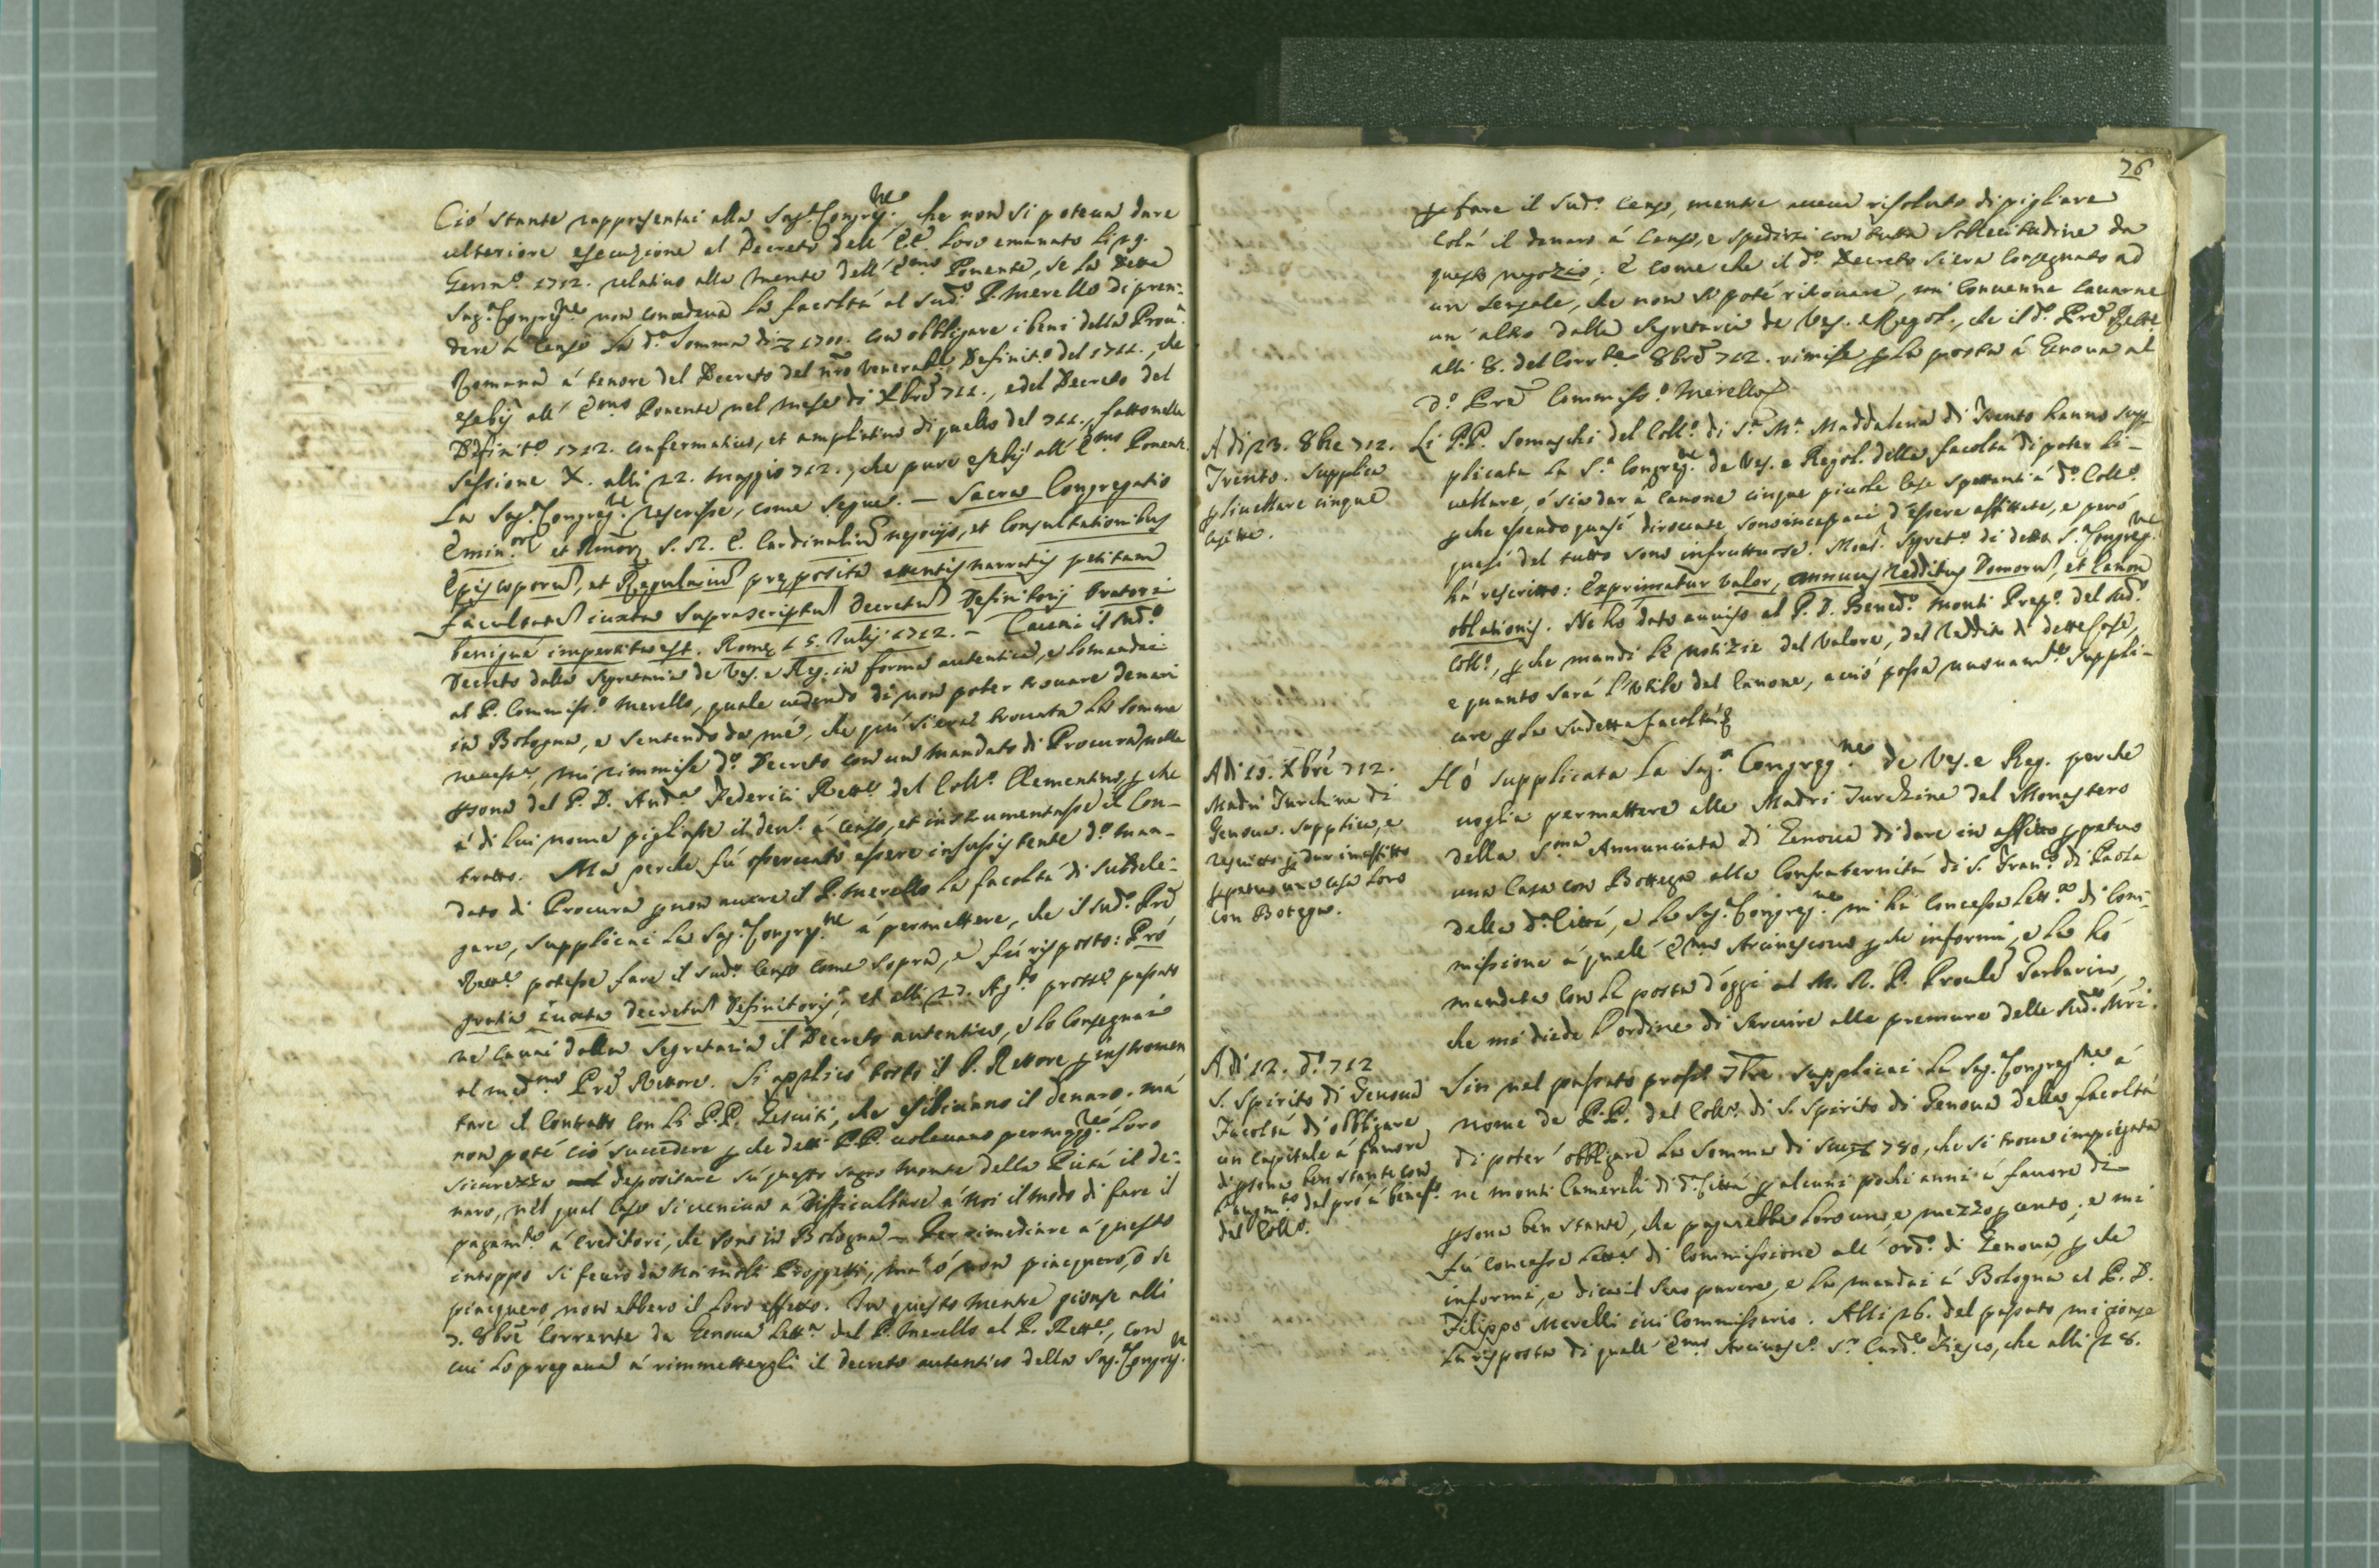 Ció stante rappresentai alla Sag.ª Congreg.ne, che non si poteua dare
ulteriore esecuzione al Decreto dell' E.E. loro emanato li 29.
Genn.º 1712. relatiuo alla mente dell' E.mo Ponente, se la detta
Sag.ª Congreg.ne non concedeua la facoltá al sud.º P. Merello di pren-
dere á Censo la d.ª somma di 1700. con obbligare i beni della Prou.ª
Romana á tenore del Decreto del nrõ Venerab.e Definit.º del 1711., che
esebij all' E.mo Ponente nel mese di Xbrẽ 711., e del Decreto del
Definit.º 1712. confermatiuo, et ampliatiuo di quello del 711., fatto nella
Sessione X. alli 22. Maggio 712., che pure esebij all' E.mo Ponente.
La Sag.ª Congreg.ne rescrisse, come segue. — Sacra Congregatio
Emin.or et Rmor S. R. E. Cardinaliũ negocijs, et Consultationibus
Episcoporũ, et Regulariũ pręposita attentis narratis petitam
facultatẽ iuxta suprascriptũ Decretũ Definitorij Oratori
benigné impertita est. Romę 15. Iulij 1712. — Cauai il sud.º
Decreto dalla Segretaria de Ves. e Reg. in forma autentica, e lo mandai
al P. Commiss.º Merello, quale uedendo di non poter trouare denari
in Bologna, e sentendo da mé, che quì si era trouata la somma
necess.ª, mi rimmise d.º Decreto con un mandato di Procura nella
psona del P. D. And.ª Federici Rett.e del Coll.º Clementino, pche
á di lui nome pigliasse il den.º á censo, et instrumentasse il Con-
tratto. Ma perche fú osseruato essere insussistente d.º man-
dato di Procura p non auere il P. Merello la facoltá di subdele-
gare, supplicai la Sag.ª Congreg.ne á permettere, che il sud.º Prẽ
Rett.e potesse fare il sud.º Censo come sopra, e fú risposto: Pró
gratia iuxta decretũ Definitorij, et alli 27. Ag.to pross.º passato
ne cauai dalla Segretaria il Decreto autentico, e lo consegnai
al med.mo Prẽ Rettore. Si applicó tosto il P. Rettore p instromen
tare il Contratto con li P.P. Gesuiti, che esibiuano il denaro. má
non poté ció succedere pche detti P.P. uoleuano per magg.re loro
sicurezza depositare sú questo sagro Monte della Pietá il de-
naro, nel qual caso si ueniua á difficultare á noi il modo di fare il
pagam.to á creditori, che sono in Bologna — Per rimediare á questo
intoppo si fecero da noi molti Proggetti, má ó non piacquero, ó se
piacquero, non ebbero il loro effetto. In questo mentre gionse alli
7. 8brẽ corrente da Genoua lett.ª del P. Merello al P. Rett.e, con
cui lo pregaua á rimmettergli il decreto autentico della Sag.ª Congreg.ne
76
p fare il sud.º Censo, mentre aueua risoluto di pigliare
colá il denaro á Censo, e spedirsi con tutta sollecitudine da
questo negozio; E come che il d.º Decreto si era consegnato ad
un sensale, che non si poté ritrouare, mi conuenne cauarne
un' altro dalla Segretaria de Ves. e Regol., che il d.º Prẽ Rett.e
alli 8. del Corr.te 8brẽ 712. rimise p la posta á Genoua al
d.º Prẽ Commiss.º Merello
A di 23. 8bre 712.
Trento. Supplica
p liuellare cinque
casette.
Li P.P. Somaschi del Coll.º di S.ª M.ª Maddalena di Trento hanno sup-
plicata la S.ª Congreg.ne de Ves. e Regol. della facoltá di poter li-
uellare, ó sia dar á canone cinque piccole case spettanti á d.º Coll.º
pche essendo quasi diroccate, sono incapaci d'essere affittate, e peró
quasi del tutto sono infruttuose. Mons.r Segret.º di detta S.ª Congreg.ne
há rescritto: Exprimatur Valor, annuus redditus Domorũ, et Canon
oblationis. Ne hó dato auuiso al P. D. Bened.º Monti Prep.º del sud.º
Coll.º, pche mandi le notizie del Valore, del reddito di dette Case,
e quanto sará l'utile del Canone, acció possa nuouam.te suppli-
care p la sudetta facoltá
A di 10. Xbrẽ 712.
Madri Turchine di
Genoua. Supplica, e
rescritto p dar in affitto
ppetuo una casa loro
con Botega.
Hó supplicata la Sag.ª Congreg.ne de Ves. e Reg. perche
uoglia permettere alle Madri Turchine del Monastero
della S.ma Annunciata di Genoua di dare in affitto ppetuo
una Casa con Bottega alla Confraternitá di S. Fran.co di Paola
della d.ª Cittá, e la Sag.ª Congreg.ne mi há concessa lett.ª di Com-
missione á quell' E.mo Arciuescouo pche informi, e la hó
mandata con la posta d'oggi al M. R. P. Proule Gerbarino,
che mi diede l'ordine di seruire alle premure delle sud.e Mri.
A di 12. d.º 712
S. Spirito di Genoua
Facoltá di obbligare
un capitale á fauore
di psona ben stante con
l'augm.to del pró á benef.º
del Coll.º
Sin nel passato pross.º 7bre supplicai la Sag.ª Congreg.ne á
nome de P.P. del Coll.º di S. Spirito di Genoua della facoltá
di poter' obbligare la somma di 780, che si troua impiegata
ne monti Camerali di d.ª Cittá p alcuni pochi anni á fauore di
psona ben stante, che pagarebbe loro uno, e mezzo p cento; e mi
fú concessa lett.ª di Commissione all' ord.º di Genoua, pche
informi, e dica il suo parere, e la mandai á Bologna al P. D.
Filippo Merelli iui Commissario. Alli 26. del passato mi gionse
la risposta di quell' E.mo Arciuesc.º S.r Card.e Fiesco, che alli 28.